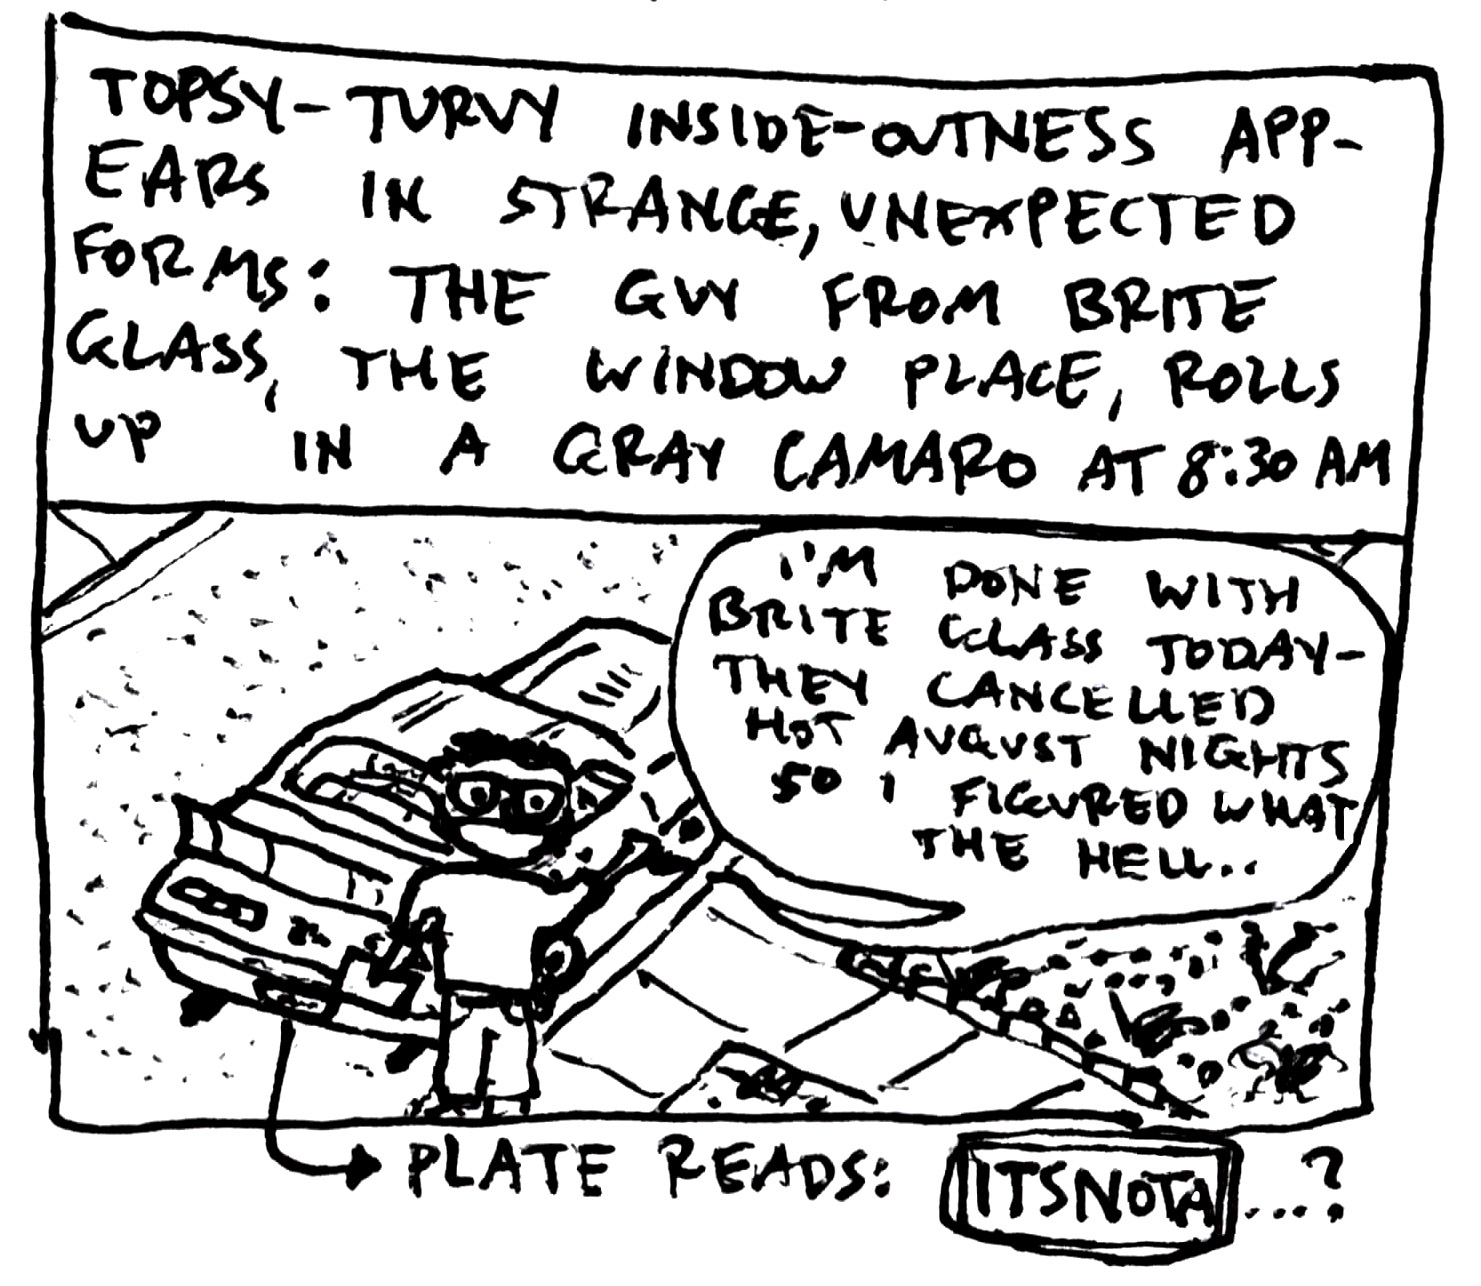 TOPSY-TURVY INSIDE-OUTNESS APP-
EARS IN STRANGE, UNEXPECTED
FORMS: THE GUY FROM BRITE
GLASS, THE WINDOW PLACE, ROLLS
UP IN A GRAY CAMARO AT 8:30 AM
I'M DONE WITH
BRITE GLASS TODAY-
THEY CANCELLED
HOT AUGUST NIGHTS
SO I FIGURED WHAT
THE HELL..
PLATE READS: ITSNOTA...?